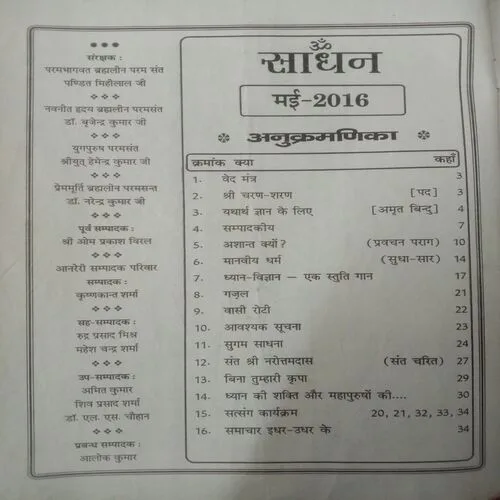 संरक्षक :
परमभागवत ब्रह्मलीन परम संत
पण्डित मिहीलाल जी
नवनीत हृदय ब्रह्मलीन परमसंत
डॉ. बृजेन्द्र कुमार जी
युगपुरुष परमसंत
श्रीयुत् हेमेन्द्र कुमार जी
प्रेममूर्ति ब्रह्मलीन परमसन्त
डॉ. नरेन्द्र कुमार जी
पूर्व सम्पादक :
श्री ओम प्रकाश विरल
आनरेरी सम्पादक परिवार
सम्पादक :
कृष्णकान्त शर्मा
सह-सम्पादक :
रुद्र प्रसाद मिश्र
महेश चन्द्र शर्मा
उप-सम्पादक :
अमित कुमार
शिव प्रसाद शर्मा
डॉ. एल. एस. चौहान
प्रबन्ध सम्पादक :
आलोक कुमार
ॐ
साधन
मई-2016
अनुक्रमणिका
क्रमांक क्या कहाँ
1. वेद मंत्र 3
2. श्री चरण-शरण [पद] 3
3. यथार्थ ज्ञान के लिए [अमृत बिन्दु] 4
4. सम्पादकीय 7
5. अशान्त क्यों? (प्रवचन पराग) 10
6. मानवीय धर्म (सुधा-सार) 14
7. ध्यान-विज्ञान – एक स्तुति गान 17
8. गज़ल 21
9. वासी रोटी 22
10. आवश्यक सूचना 23
11. सुगम साधना 24
12. संत श्री नरोत्तमदास (संत चरित) 27
13. बिना तुम्हारी कृपा 29
14. ध्यान की शक्ति और महापुरुषों की.... 30
15. सत्संग कार्यक्रम 20, 21, 32, 33, 34
16. समाचार इधर-उधर के 34